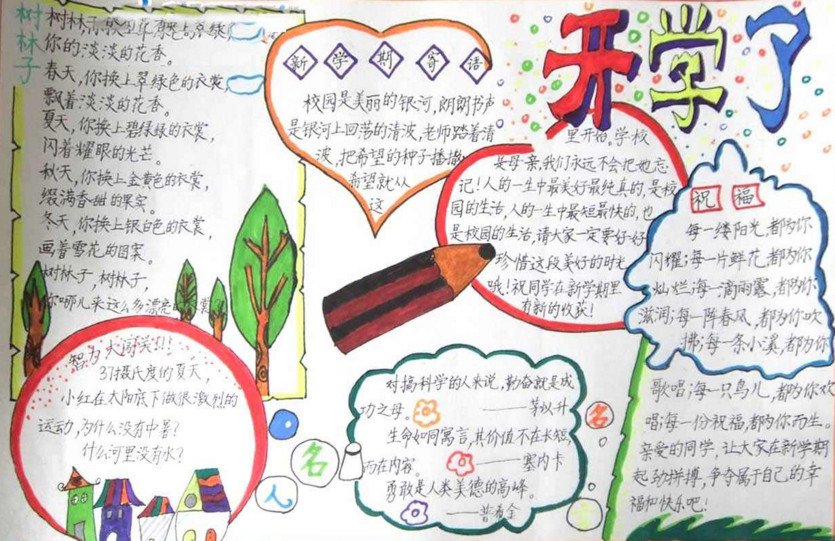 开学了
树林子
树林子,
你的淡淡的花香。
春天,你换上翠绿色的衣裳,
飘着淡淡的花香。
夏天,你换上碧绿绿的衣裳,
闪着耀眼的光芒。
秋天,你换上金黄色的衣裳,
缀满香甜的果实。
冬天,你换上银白色的衣裳,
画着雪花的图案。
树林子,树林子,
你哪儿来这么多漂亮的衣裳
新学期寄语
校园是美丽的银河,朗朗书声
是银河上回荡的清波,老师踏着清
波,把希望的种子播撒
希望就从
这
里开始。学校
是母亲,我们永远不会把她忘
记!人的一生中最美好最纯真的,是校
园的生活,人的一生中最短最快的,也
是校园的生活,请大家一定要好好
珍惜这段美好的时光
哦!祝同学在新学期里
有新的收获!
祝福
每一缕阳光,都为你
闪耀;每一片鲜花,都为你
灿烂;每一滴雨露,都为你
滋润;每一阵春风,都为你吹
拂;每一条小溪,都为你
歌唱;每一只鸟儿,都为你欢
唱;每一份祝福,都为你而生。
亲爱的同学,让大家在新学期
起劲拼搏,争夺属于自己的幸
福和快乐吧!
智力大闯关!!!
37摄氏度的夏天,
小红在太阳底下做很激烈的
运动,为什么没有中暑?
什么河里没有水?
名人名言
对搞科学的人来说,勤奋就是成
功之母。
——茅以升
生命如同寓言,其价值不在长短,
而在内容。
——塞内卡
勇敢是人类美德的高峰。
——普希金